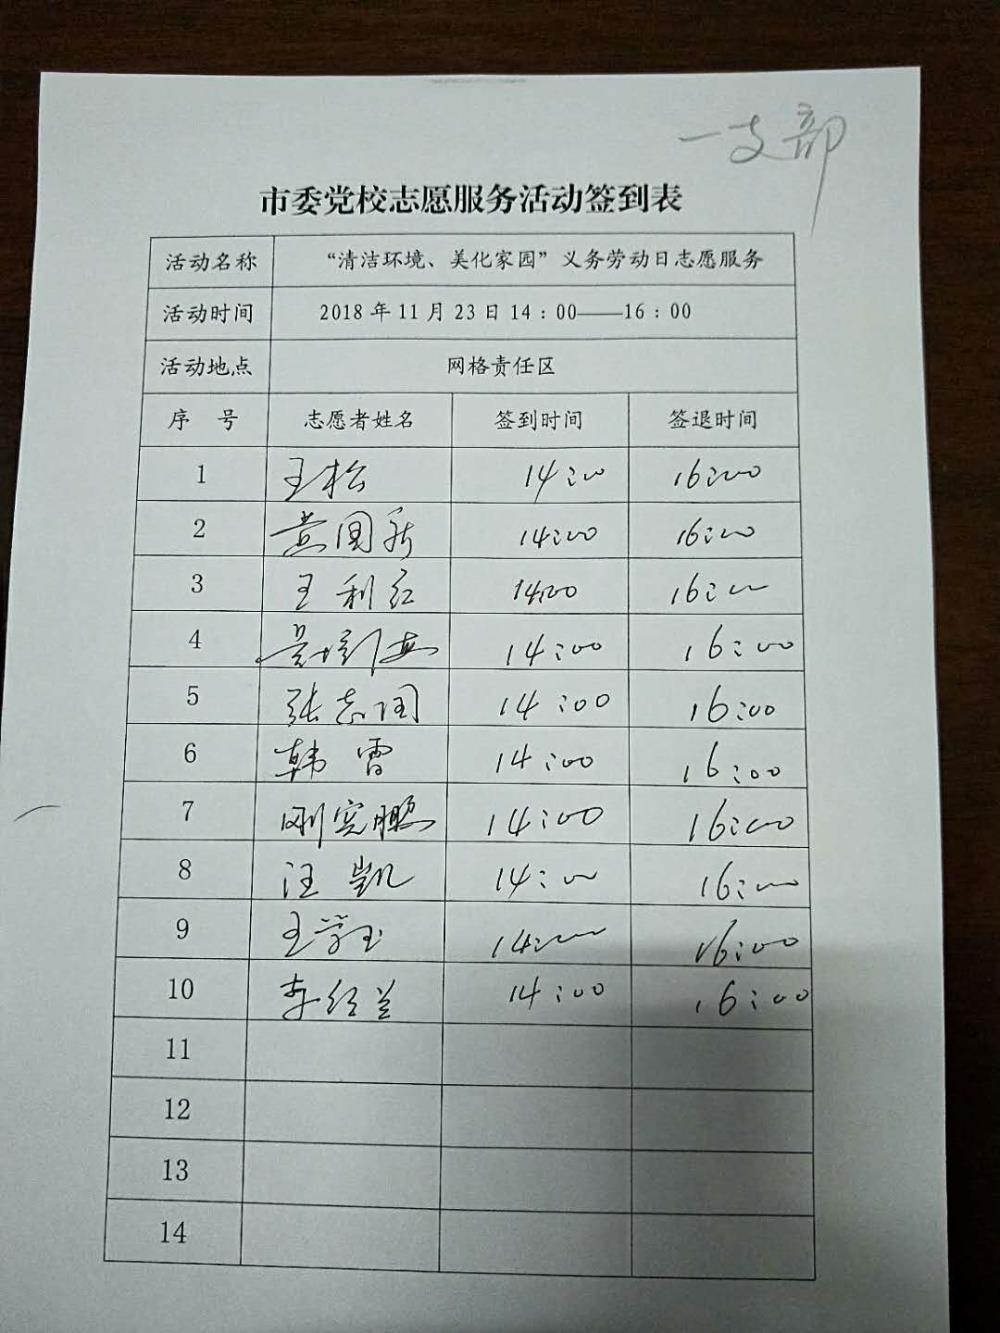 一支部
市委党校志愿服务活动签到表
活动名称 “清洁环境、美化家园”义务劳动日志愿服务
活动时间 2018年11月23日14：00——16：00
活动地点 网格责任区
序 号 志愿者姓名 签到时间 签退时间
1 王松 14:00 16:00
2 黄国新 14:00 16:00
3 王利红 14:00 16:00
4 14:00 16:00
5 张志国 14:00 16:00
6 韩雷 14:00 16:00
7 刚宪鹏 14:00 16:00
8 汪凯 14:00 16:00
9 王学玉 14:00 16:00
10 李红兰 14:00 16:00
11
12
13
14